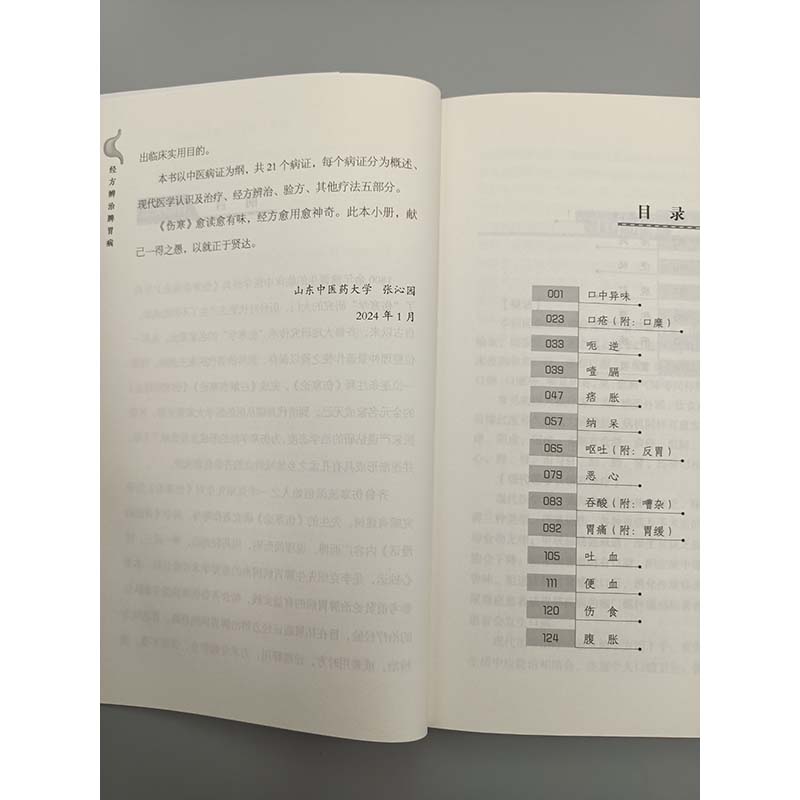 经方辨治脾胃病
出临床实用目的。
本书以中医病证为纲，共21个病证，每个病证分为概述、
现代医学认识及治疗、经方辨治、验方、其他疗法五部分。
《伤寒》愈读愈有味，经方愈用愈神奇。此本小册，献
己一得之愚，以就正于贤达。
山东中医药大学 张沁园
2024年1月
目 录
001 口中异味
023 口疮（附：口糜）
033 呃 逆
039 噎 膈
047 痞 胀
057 纳 呆
065 呕吐（附：反胃）
079 恶 心
083 吞酸（附：嘈杂）
092 胃痛（附：胃缓）
105 吐 血
111 便 血
120 伤 食
124 腹 胀